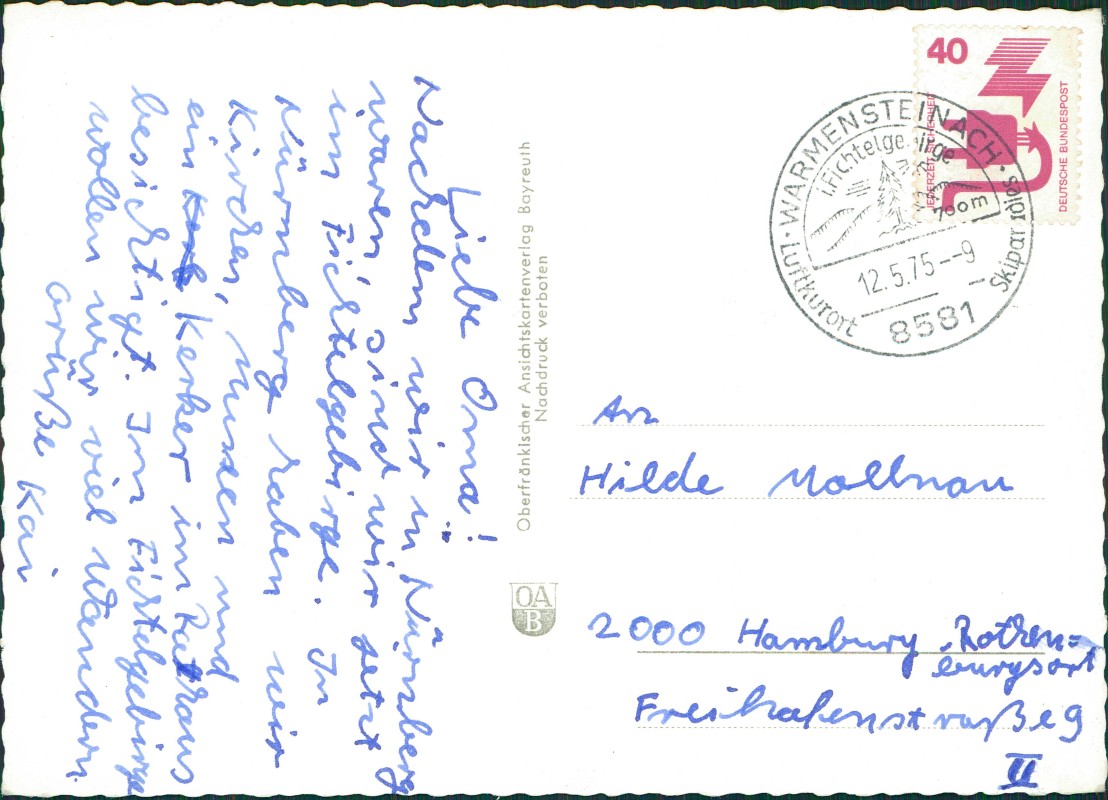 Liebe Oma!
Nachdem wir in Nürnberg
waren, sind wir jetzt
im Fichtelgebirge. In
Nürnberg haben wir
Kirchen, Museen und
ein Kerker im Rathaus
besichtigt. Im Fichtelgebirge
wollen wir viel wandern.
Grüße Kai
Oberfränkischer Ansichtskartenverlag Bayreuth
Nachdruck verboten
OA
B
40
JEDERZEIT SICHERHEIT
DEUTSCHE BUNDESPOST
WARMENSTEINACH
i. Fichtelgebirge
700m
12.5.75--9
Luftkurort
Skiparadies
8581
An
Hilde Mollnau
2000 Hamburg, Rothen=
burgsort
Freihafenstraße 9
II